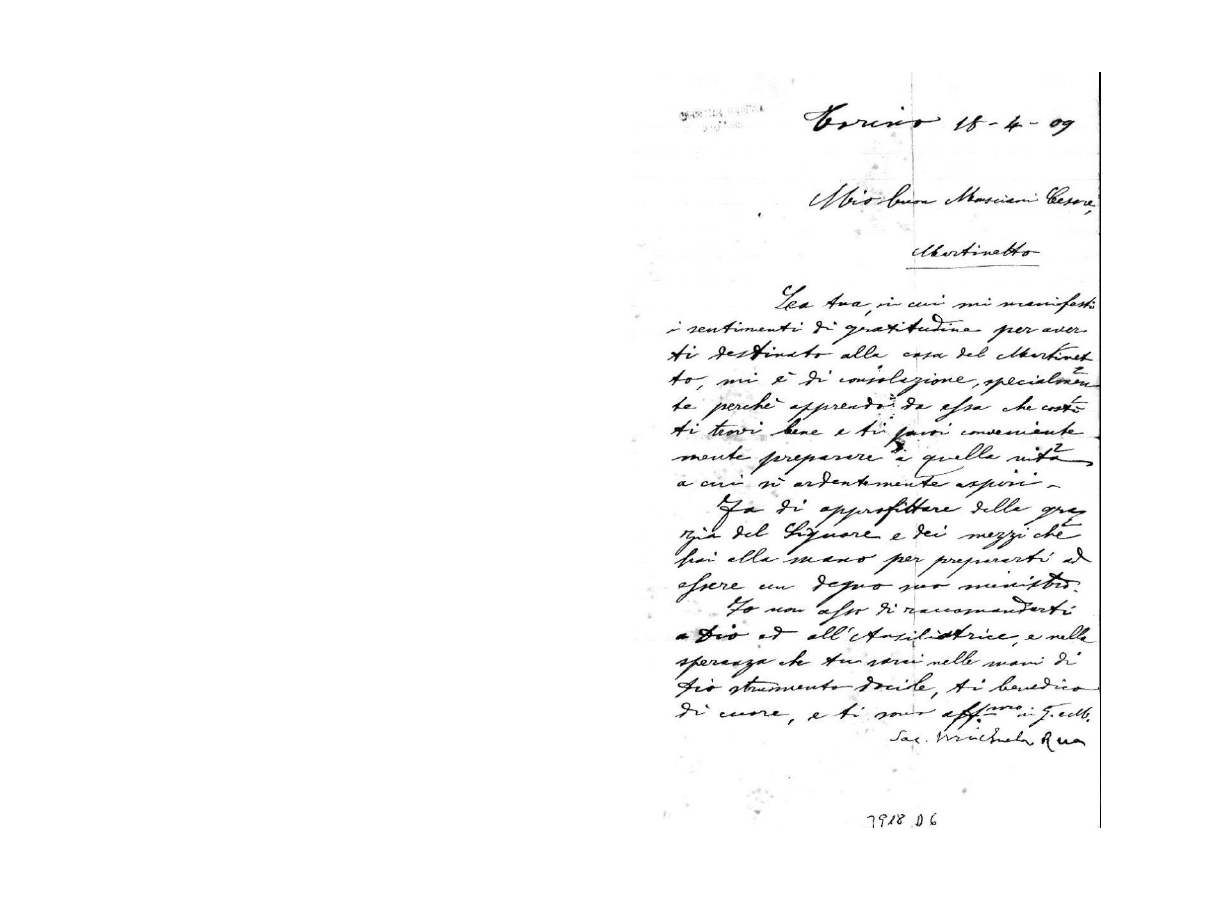 Torino 18-4-09
Mio buon Masciari Cesare,
Martinetto
La tua, in cui mi manifesti
i sentimenti di gratitudine per aver-
ti destinato alla casa del Martinet
to, mi è di consolazione, specialmen
te perchè apprendo da essa che costì
ti trovi bene e ti puoi conveniente
mente preparare a quella vita
a cui sì ardentemente aspiri -
Fa di approfittare della gra
zia del Signore e dei mezzi che
hai alla mano per prepararti ad
essere un degno suo ministro.
Io non cesso di raccomandarti
a Dio ed all'Ausiliatrice, e nella
speranza che tu sarai nelle mani di
Dio strumento docile, ti benedico
di cuore, e ti sono aff.mo in G. e M.
Sac. Michele Rua
7918 D6